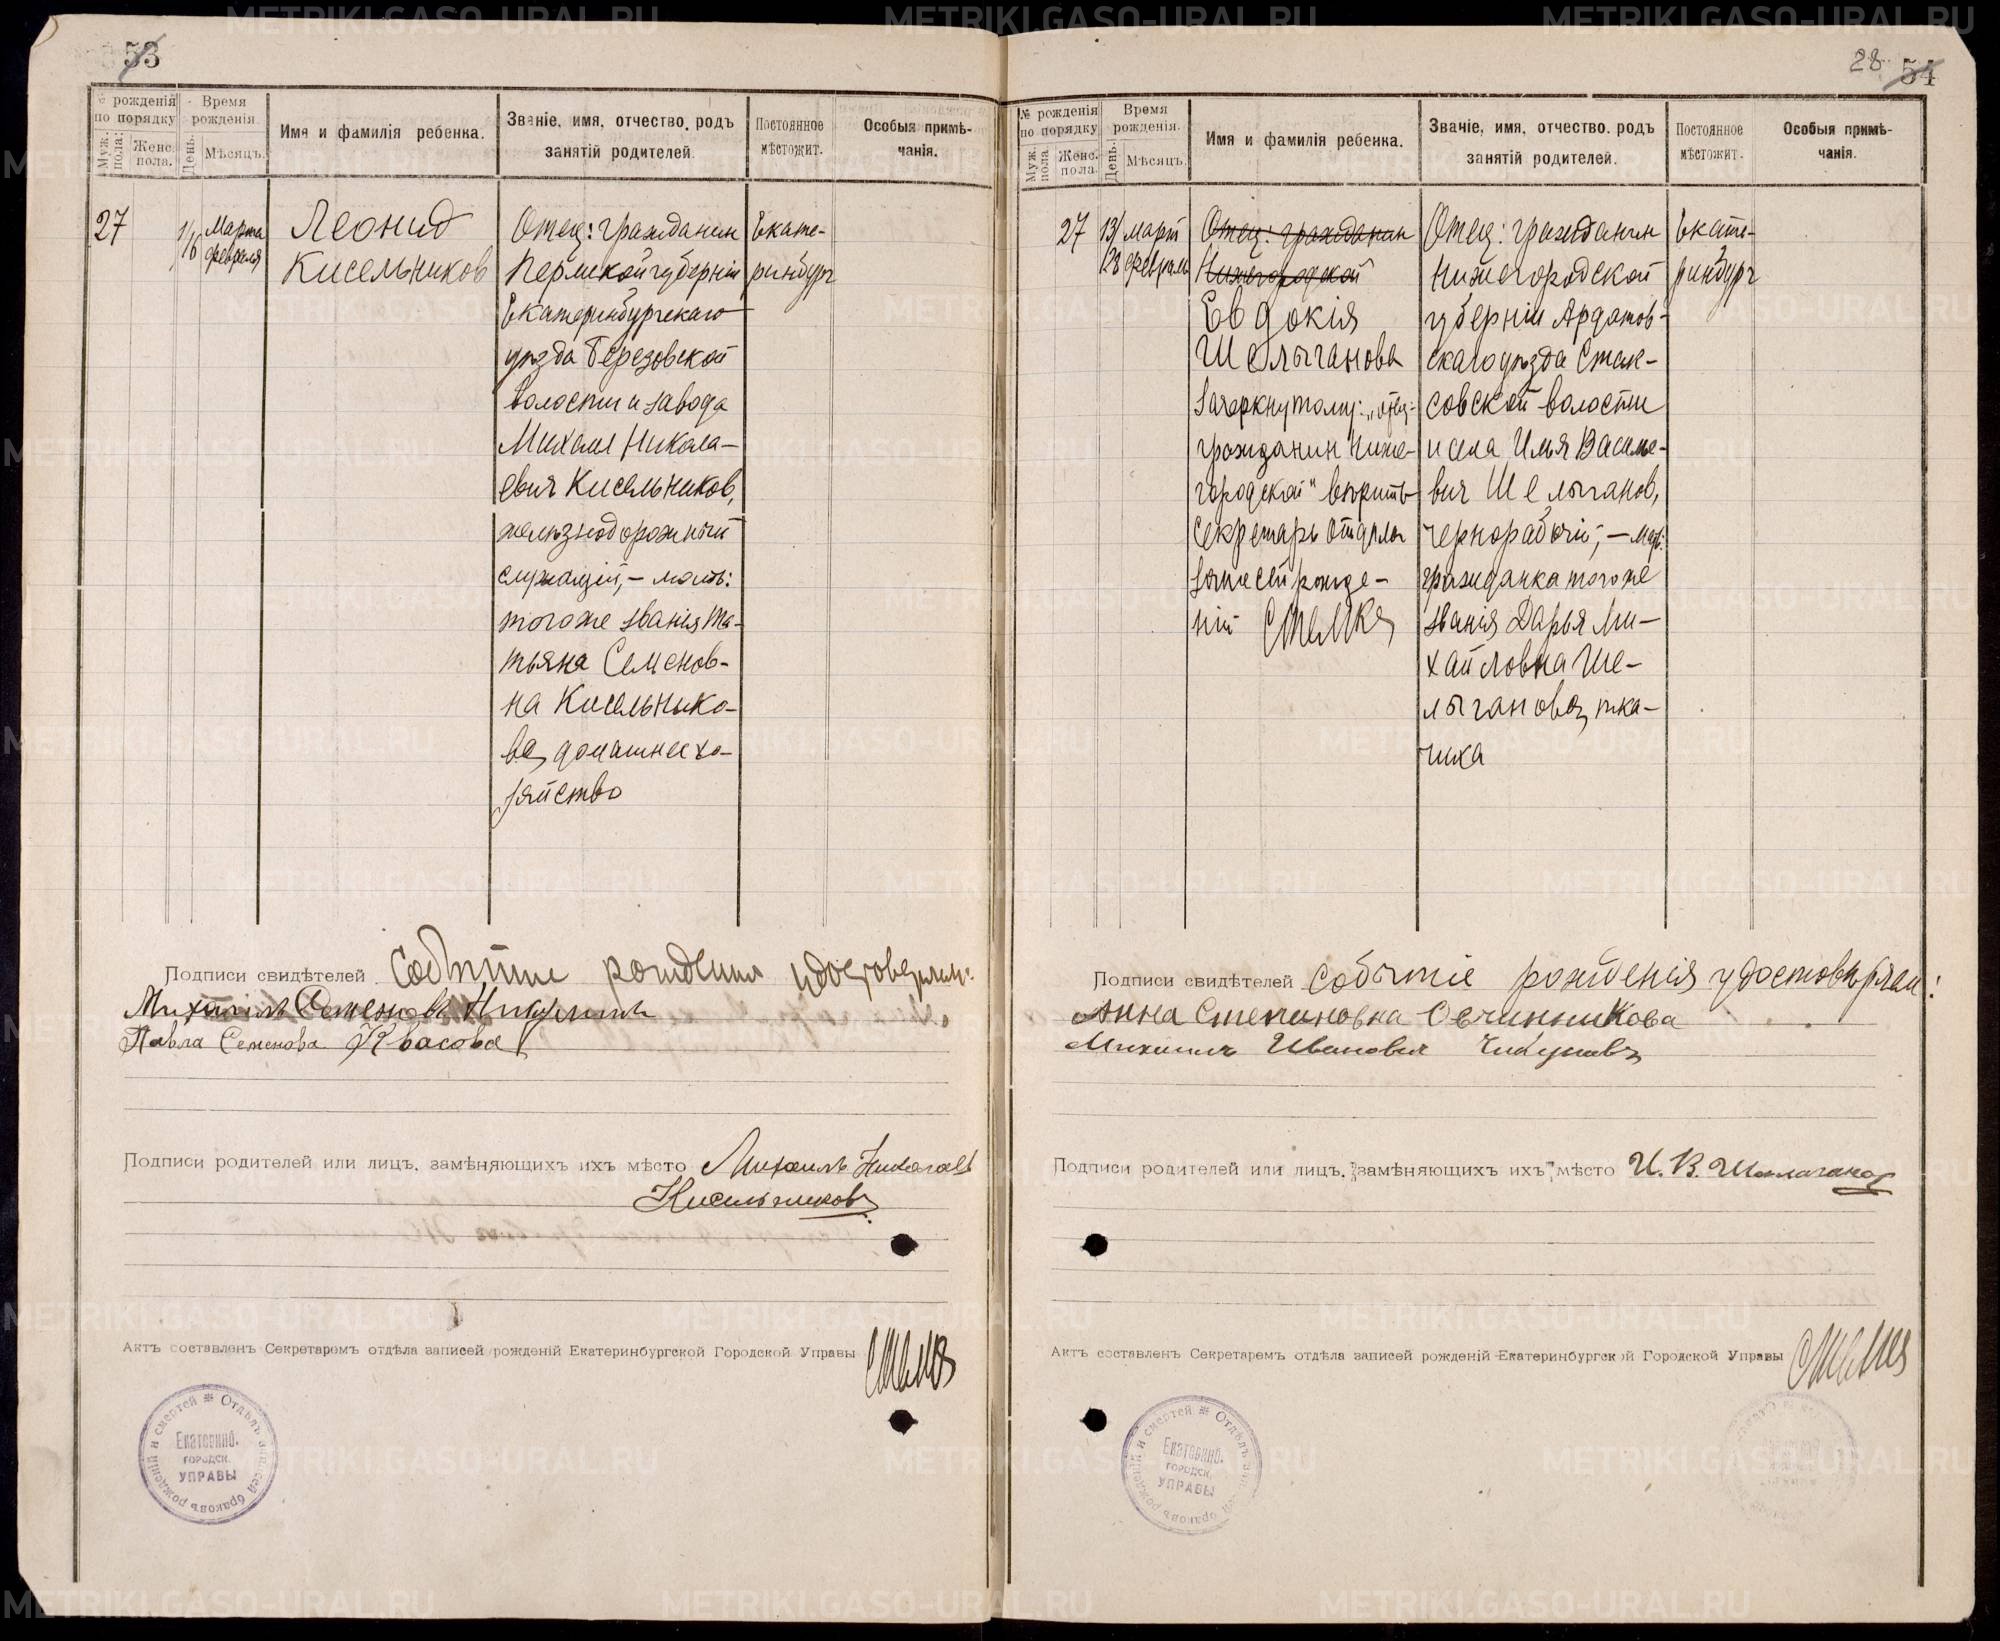 53
№ рожденія по порядку
Время рожденія.
Имя и фамилія ребенка.
Званіе, имя, отчество, родъ занятій родителей.
Постоянное мѣстожит.
Особыя примѣ-
чанія.
Муж. пола.
Женс. пола.
День.
Мѣсяцъ.
27
Марта
февраля
Леонид
Кисельников
Отец: гражданин
Пермской губерніи
Екатеринбургскаго
уѣзда Березовской
волости и завода
Михаил Никола-
евич Кисельников,
желѣзнодорожный
служащій, – мать:
тогоже званія Та-
тьяна Семенов-
на Кисельнико-
ва, домашнее хо-
зяйство
Екате-
ринбург
Подписи свидѣтелей
Событие рождения удостоверяем:
Михаилъ Семеновъ
Павла Семенова Квасова
Подписи родителей или лицъ, замѣняющихъ ихъ мѣсто Михаилъ Николаевъ
Кисельниковъ
Актъ составленъ Секретаремъ отдѣла записей рожденій Екатеринбургской Городской Управы
Отдѣлъ записей браковъ рожденій и смертей
Екатеринб.
городск.
УПРАВЫ
28 54
№ рожденія по порядку
Время рожденія.
Имя и фамилія ребенка.
Званіе, имя, отчество, родъ занятій родителей.
Постоянное мѣстожит.
Особыя примѣ-
чанія.
Муж. пола.
Женс. пола.
День.
Мѣсяцъ.
27
13/ март
28 февраль
Отец: гражданин
Нижегородской
Евдокія
Шелыганова
Зачеркнутому: „отец:
гражданин Ниже-
городской" вѣрить
Секретарь Отдѣла
записей рожде-
ній
Отец: гражданин
Нижегородской
губерніи Ардатов-
скаго уѣзда Стек-
совской волости
и села Илья Василье-
вич Шелыганов,
чернорабочій, – мать:
гражданка тогоже
званія Дарья Ми-
хайловна Ше-
лыганова, тка-
чиха
Екате-
ринбург
Подписи свидѣтелей Событіе рожденія удостовѣряем:
Анна Степановна Овчинникова
Михаилъ Ивановичъ
Подписи родителей или лицъ, замѣняющихъ ихъ мѣсто И. В. Шелыганов
Актъ составленъ Секретаремъ отдѣла записей рожденій Екатеринбургской Городской Управы
Отдѣлъ записей браковъ рожденій и смертей
Екатеринб.
городск.
УПРАВЫ
METRIKI.GASO-URAL.RU